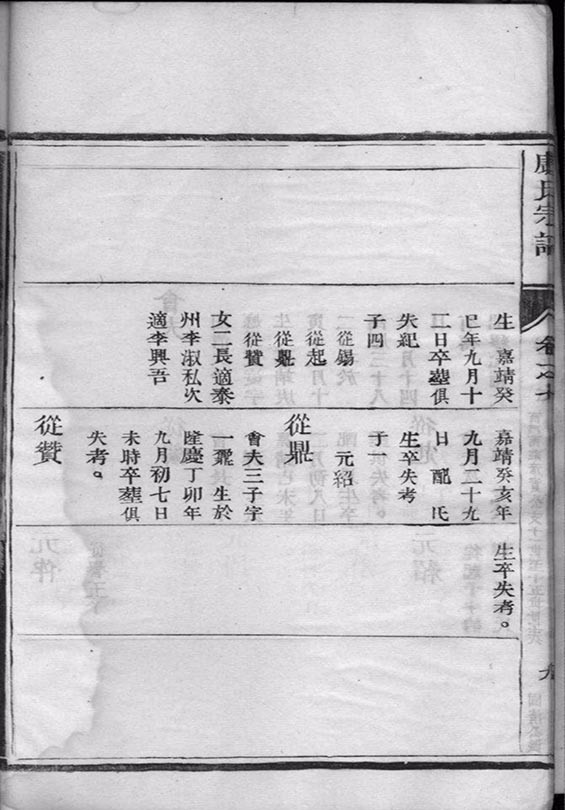 氏宗譜
卷之十
九
生 嘉靖癸
巳年九月十
二日卒塟俱
失紀
子四
從錫
從起
從鼎
從贊
女二長適泰
州李淑私次
適李興吾
嘉靖癸亥年
九月二十九
日 配 氏
生卒失考
子一
元紹
從鼎
會夫三子字
一鼐 生於
隆慶丁卯年
九月初七日
未時卒塟俱
失考。
從贊
生卒失考。